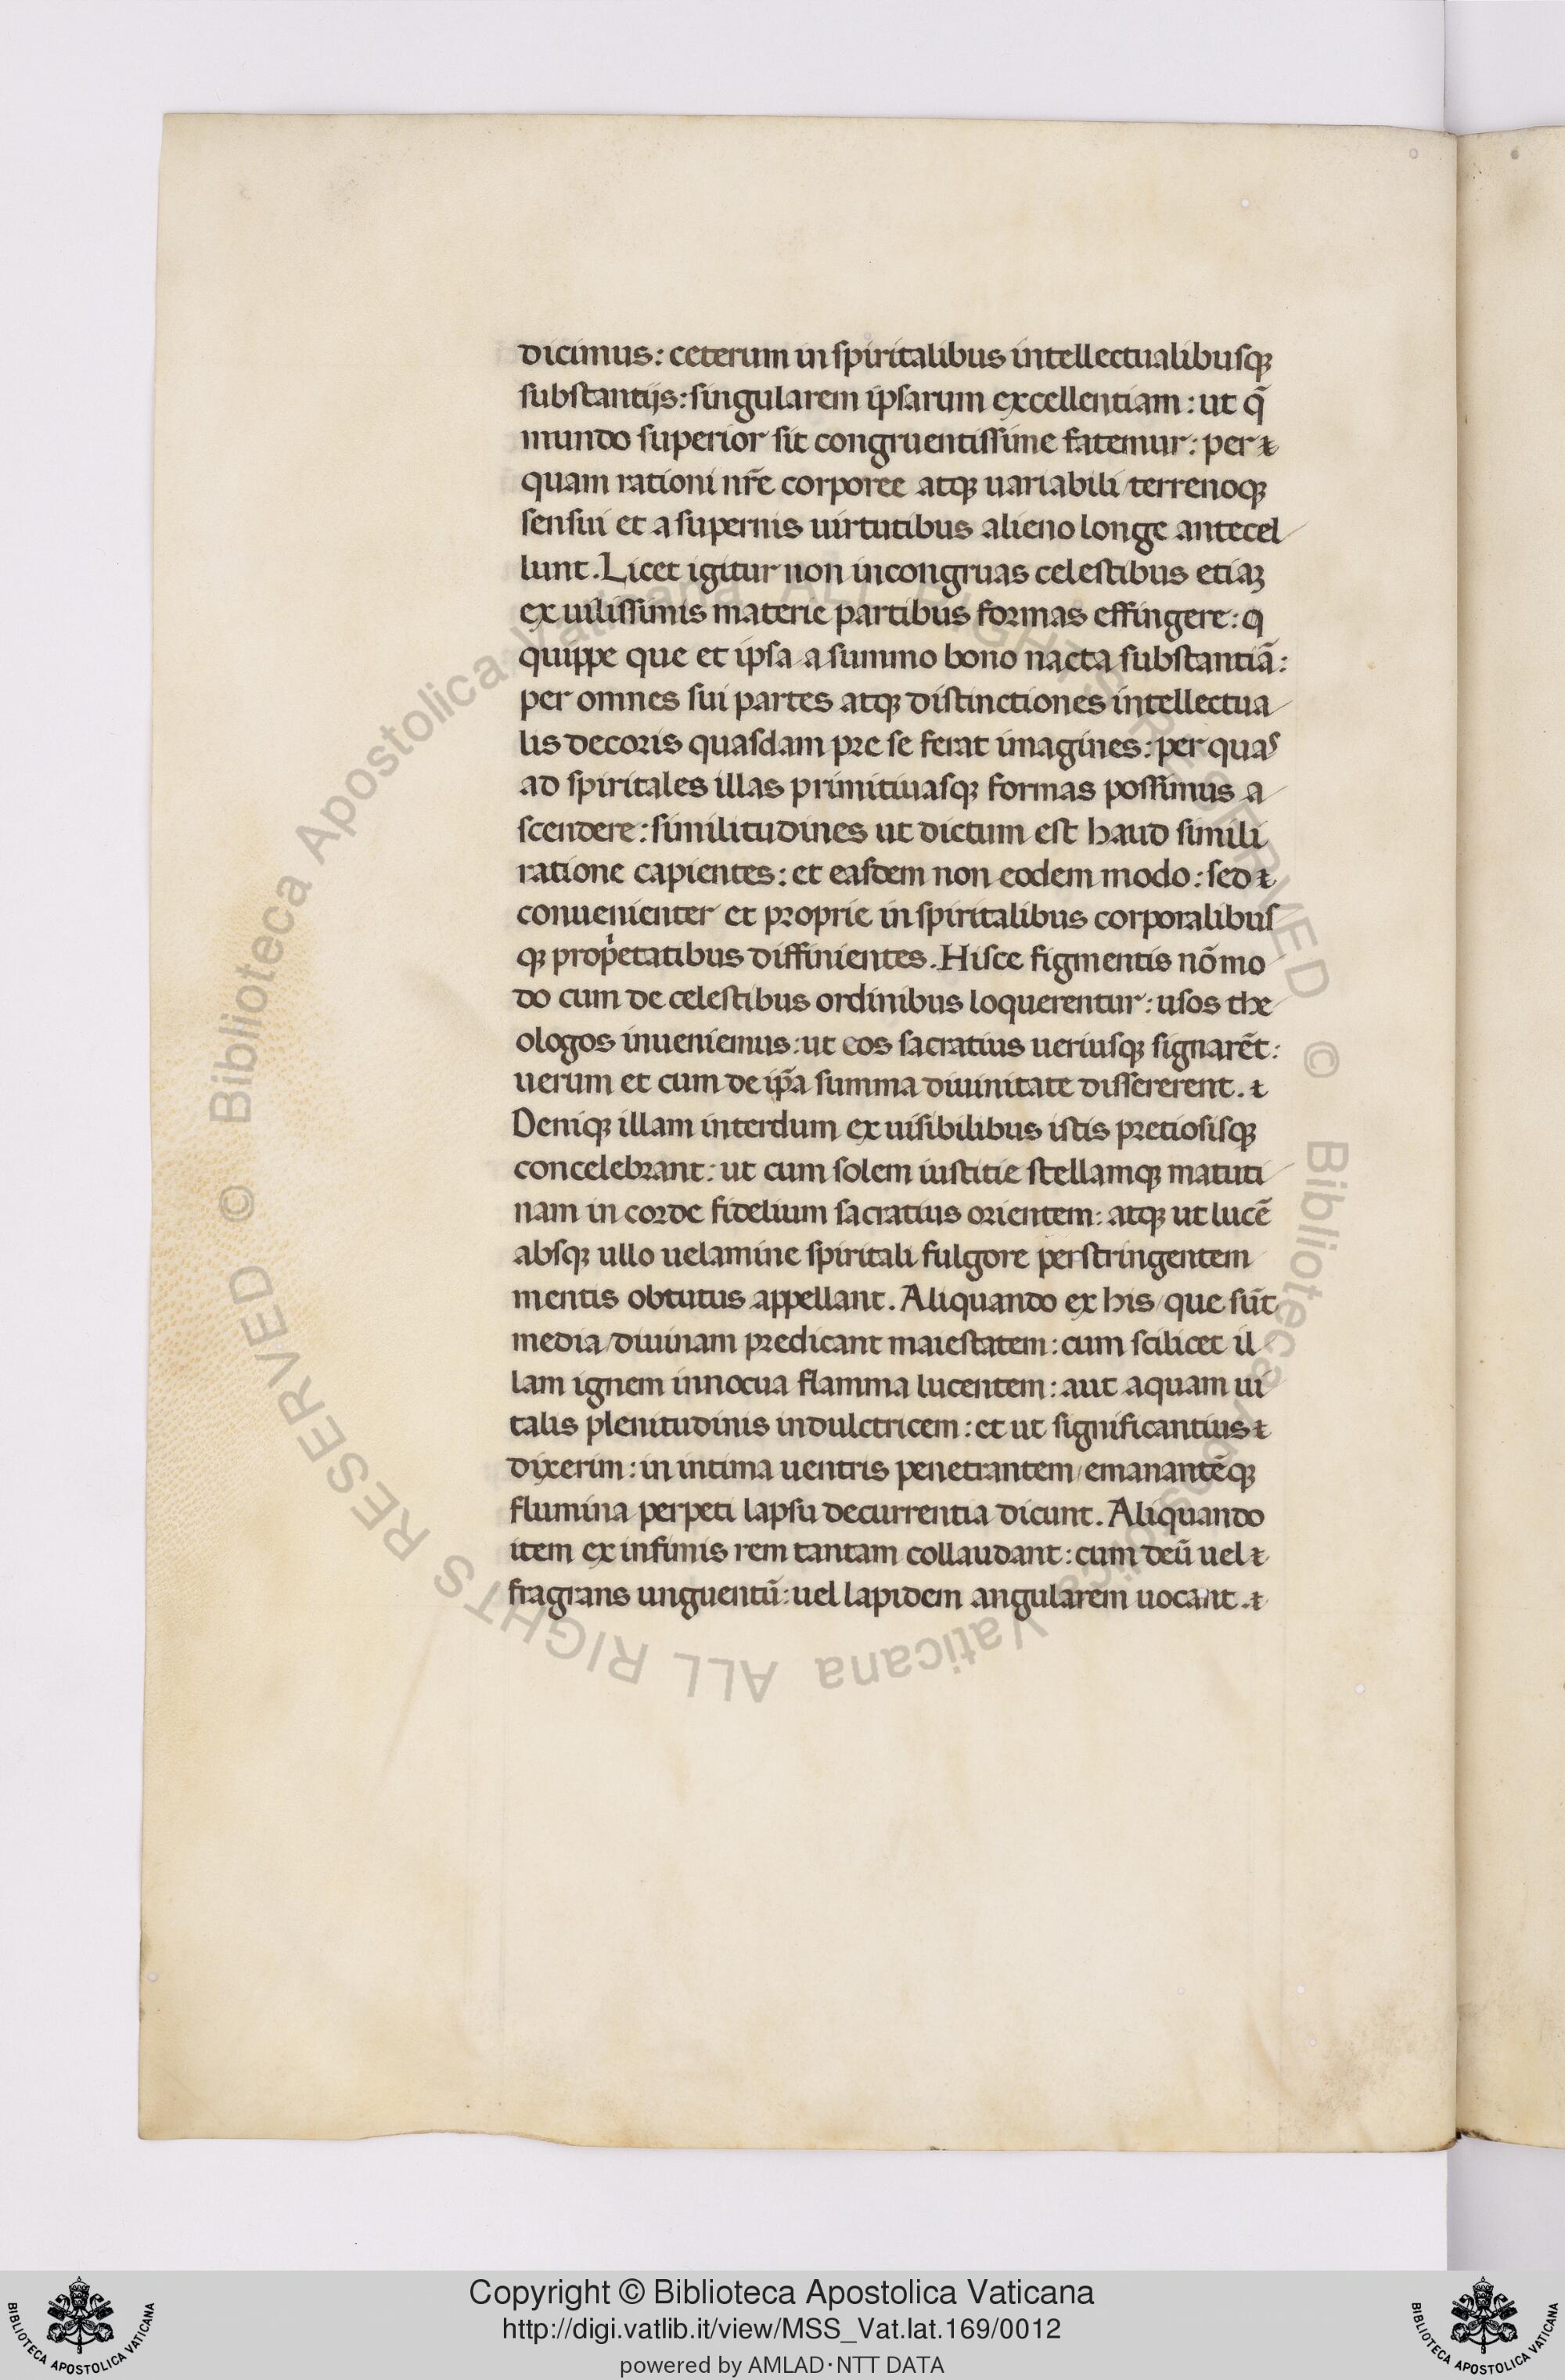 dicimus: ceterum in spiritalibus intellectualibusqꝫ
substantijs: singularem ipsarum excellentiam: ut q̃
mundo superior sit congruentissime fatemur: per ⁊
quam rationi nr̃e corporee atqꝫ uariabili/ terrenoqꝫ
sensui et a supernis uirtutibus alieno longe antecel
lunt. Licet igitur non incongruas celestibus etiaꝫ
ex uilissimis materie partibus formas effingere: q
quippe que et ipsa a summo bono nacta substantiã:
per omnes sui partes atqꝫ distinctiones intellectua
lis decoris quasdam pre se ferat imagines: per quas
ad spiritales illas primitiuasqꝫ formas possimus a
scendere: similitudines ut dictum est haud simili
ratione capientes: et easdem non eodem modo: sed ⁊
conuenienter et proprie in spiritalibus corporalibus
qꝫ prop̓etatibus diffinientes. Hisce figmentis nõ mo
do cum de celestibus ordinibus loquerentur: usos the
ologos inueniemus: ut eos sacratius ueriusqꝫ signarẽt:
uerum et cum de ip̃a summa diuinitate dissererent. ⁊
Deniqꝫ illam interdum ex uisibilibus istis pretiosisqꝫ
concelebrant: ut cum solem iustitie stellamqꝫ matuti
nam in corde fidelium sacratius orientem: atqꝫ ut lucẽ
absqꝫ ullo uelamine spiritali fulgore perstringentem
mentis obtutus appellant. Aliquando ex his/ que sũt
media/ diuinam predicant maiestatem: cum scilicet il
lam ignem innocua flamma lucentem: aut aquam ui
talis plenitudinis indultricem: et ut significantius ⁊
dixerim: in intima uentris penetrantem/ emanantẽqꝫ
flumina perpeti lapsu decurrentia dicunt. Aliquando
item ex infimis rem tantam collaudant: cum deũ uel ⁊
fragrans unguentũ: uel lapidem angularem uocant. ⁊
© Biblioteca Apostolica Vaticana ALL RIGHTS RESERVED © Biblioteca Apostolica Vaticana ALL RIGHTS RESERVED
Copyright © Biblioteca Apostolica Vaticana
http://digi.vatlib.it/view/MSS_Vat.lat.169/0012
powered by AMLAD·NTT DATA
BIBLIOTECA APOSTOLICA VATICANA
BIBLIOTECA APOSTOLICA VATICANA